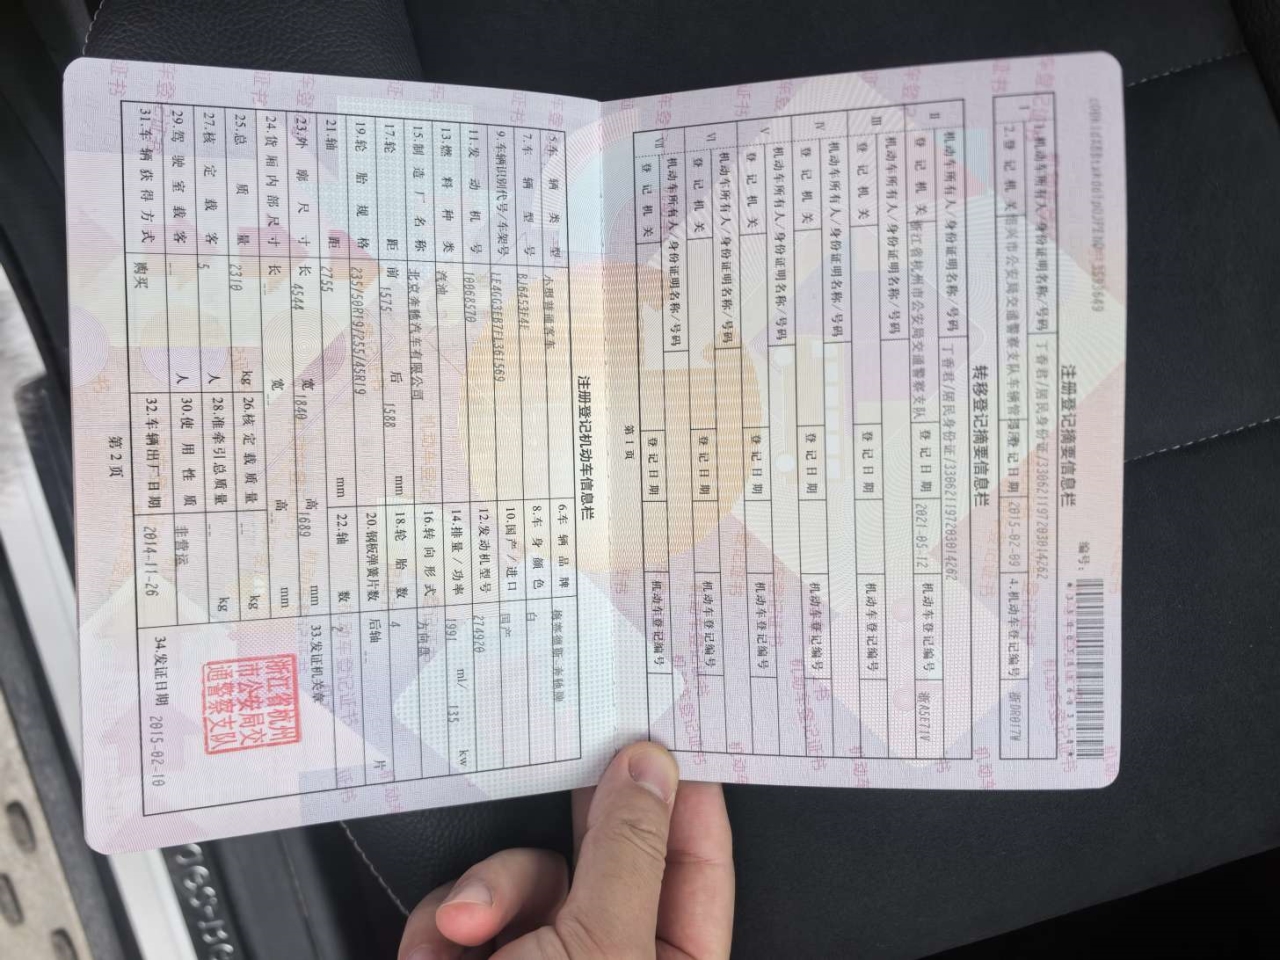 编号:
注册登记摘要信息栏
I
1.机动车所有人/身份证明名称/号码 丁香君/居民身份证/330621197203014262
2.登记机关 绍兴市公安局交通警察支队车辆管理所 登记日期 2015-02-09 4.机动车登记编号 浙DR017W
转移登记摘要信息栏
II
机动车所有人/身份证明名称/号码 丁香君/居民身份证/330621197203014262
登记机关 浙江省杭州市公安局交通警察支队 登记日期 2021-05-12 机动车登记编号 浙A5E71V
III
机动车所有人/身份证明名称/号码
登记机关 登记日期 机动车登记编号
IV
机动车所有人/身份证明名称/号码
登记机关 登记日期 机动车登记编号
V
机动车所有人/身份证明名称/号码
登记机关 登记日期 机动车登记编号
VI
机动车所有人/身份证明名称/号码
登记机关 登记日期 机动车登记编号
VII
机动车所有人/身份证明名称/号码
登记机关 登记日期 机动车登记编号
第1页
注册登记机动车信息栏
5.车辆类型 小型普通客车 6.车辆品牌
7.车辆型号 BJ6453E4E 8.车身颜色 白
9.车辆识别代号/车架号 LE4GG3EB7FL361569 10.国产/进口 国产
11.发动机号 10068570 12.发动机型号 274920
13.燃料种类 汽油 14.排量/功率 1991 ml/ 135 kw
15.制造厂名称 北京奔驰汽车有限公司 16.转向形式 方向盘
17.轮距 前 1575 后 1588 mm 18.轮胎数 4
19.轮胎规格 235/50R19/255/45R19 20.钢板弹簧片数 后轴 -- 片
21.轴距 2755 mm 22.轴数 2
23.外廓尺寸 长 4644 宽 1840 高 1689 mm
24.货厢内部尺寸 长 -- 宽 -- 高 -- mm
25.总质量 2310 kg 26.核定载质量 -- kg
27.核定载客 5 人 28.准牵引总质量 -- kg
29.驾驶室载客 -- 人 30.使用性质 非营运
31.车辆获得方式 购买 32.车辆出厂日期 2014-11-26
33.发证机关章
浙江省杭州
市公安局交
通警察支队
34.发证日期 2015-02-10
第2页